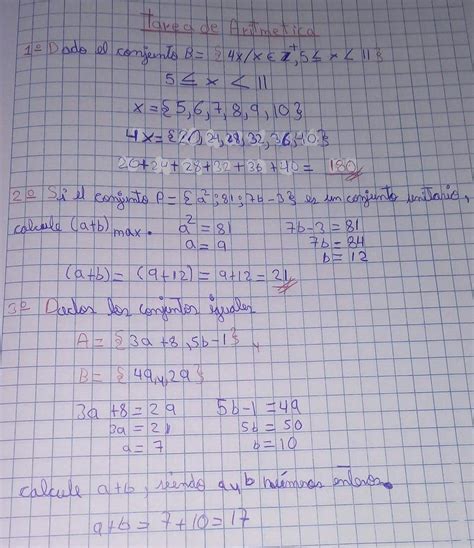 Tarea de Aritmetica
1º Dado el conjunto B= { 4x/x ∈ Z⁺, 5 ≤ x < 11 }
5 ≤ x < 11
x = {5,6,7,8,9,10}
4x = {20,24,28,32,36,40}
20+24+28+32+36+40= 180
2º Si el conjunto P= {a²;81;7b-3} es un conjunto unitario,
calcule (a+b) max. a² = 81 7b-3 = 81
a = 9 7b = 84
b = 12
(a+b) = (9+12) = 9+12 = 21
3º Dados los conjuntos iguales
A = {3a+8,5b-1} y
B = {49,y,29}
3a+8 = 29 5b-1 = 49
3a = 21 5b = 50
a = 7 b = 10
calcule a+b, siendo a y b números enteros.
a+b = 7+10 = 17